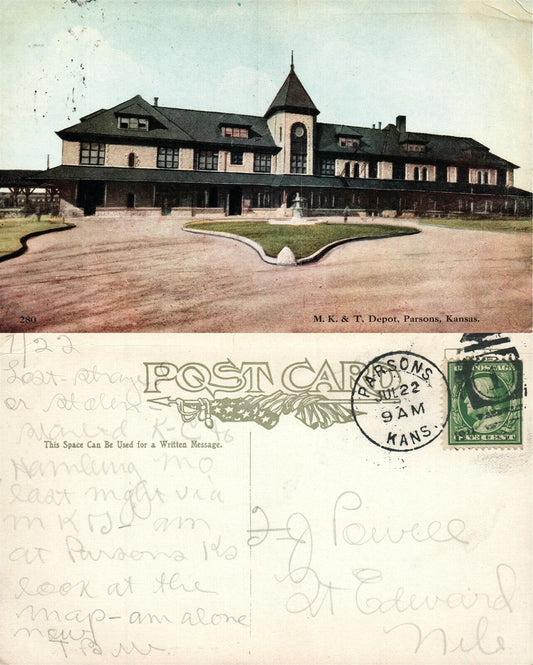 280
M. K. & T. Depot, Parsons, Kansas.
7/22
POST CARD
Lost - strayed
or stolen
This Space Can Be Used for a Written Message.
started K-C to
Mo
last night via
MKT - am
at Parsons Ks
look at the
map - am alone
now
PARSONS.
JUL 22
9 AM
KANS.
U.S. POSTAGE
ONE CENT
J Powell
St Edward
Neb